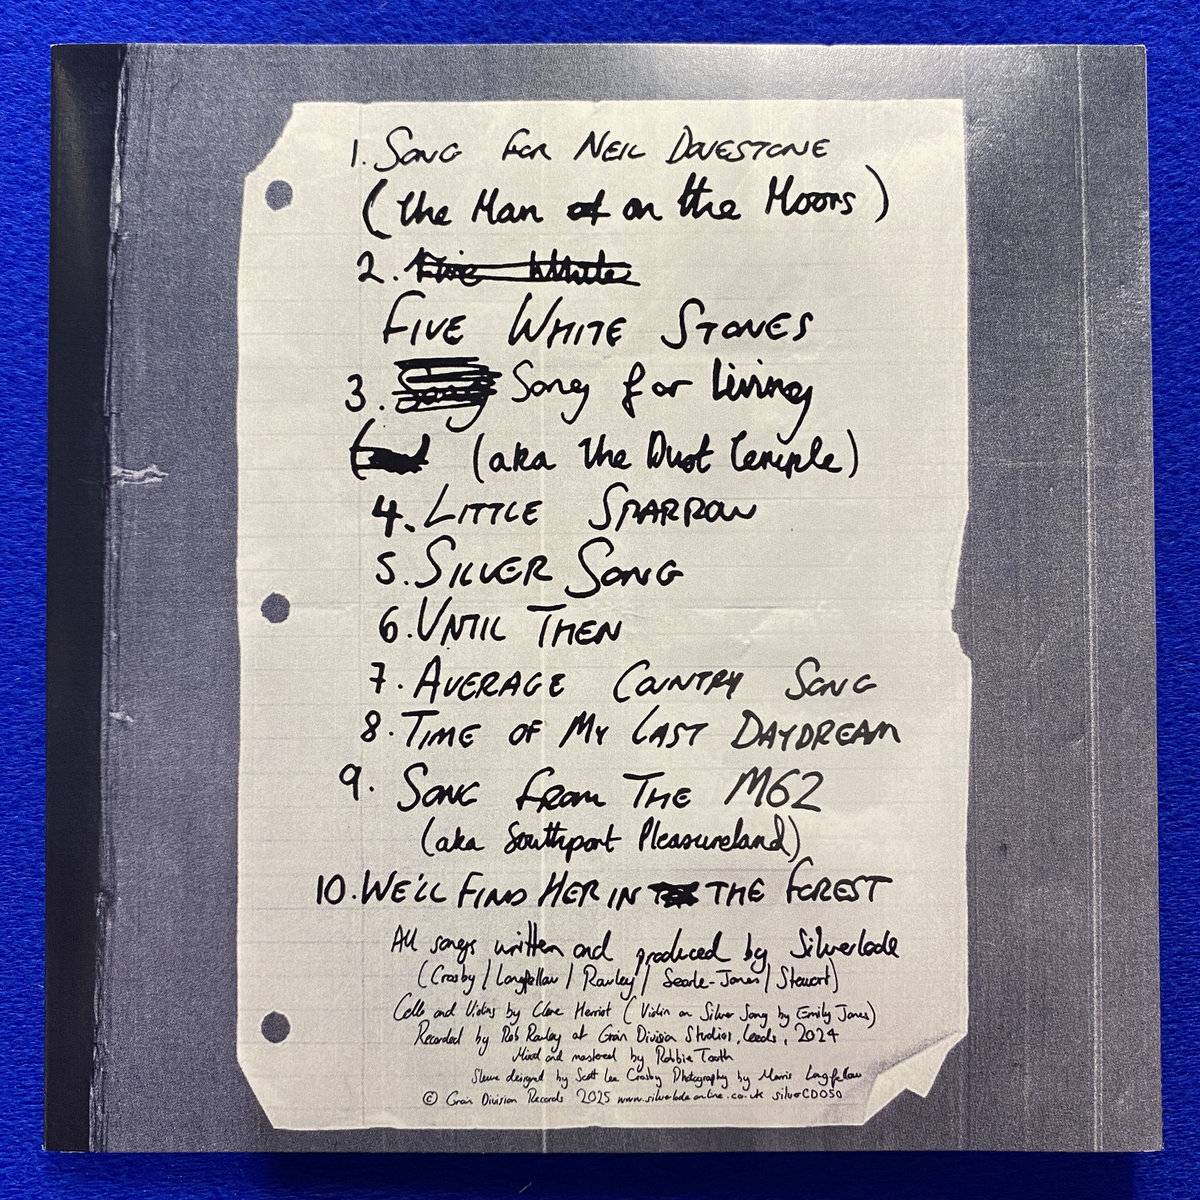 1. SONG FOR NEIL DOVESTONE
(the Man of on the Moors)
2. Five White
FIVE WHITE STONES
3. Song Song for Living
(aka the Dust Temple)
4. LITTLE SPARROW
5. SILVER SONG
6. UNTIL THEN
7. AVERAGE COUNTRY SONG
8. TIME OF MY LAST DAYDREAM
9. SONG FROM THE M62
(aka Southport Pleasureland)
10. WE'LL FIND HER IN THE FOREST
All songs written and produced by Silverlode
(Crosby / Longfellow / Rawley / Searle-Jones / Stewart)
Cello and Violins by Clare Herriot (Violin on Silver Song by Emily Jones)
Recorded by Rob Rawley at Grain Division Studios, Leeds, 2024
Mixed and mastered by Robbie Tooth
Sleeve designed by Scott Lee Crosby Photography by Morris Longfellow
© Grain Division Records 2025 www.silverlodeonline.co.uk silverCD050